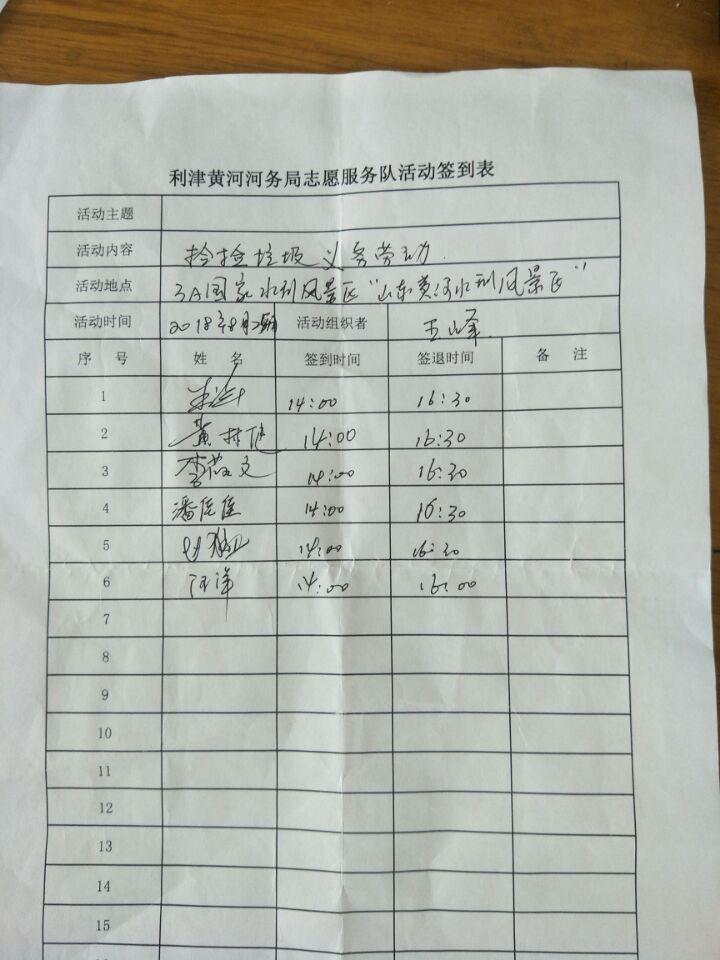 利津黄河河务局志愿服务队活动签到表
活动主题
活动内容 捡捡垃圾义务劳动
活动地点 3A国家水利风景区"山东黄河水利风景区"
活动时间 2018年8月 活动组织者 王山峰
序 号 姓 名 签到时间 签退时间 备 注
1 14:00 16:30
2 黄 14:00 16:30
3 李 文 14:00 16:30
4 潘佳佳 14:00 16:30
5 14:00 16:30
6 汪洋 14:00 16:00
7
8
9
10
11
12
13
14
15